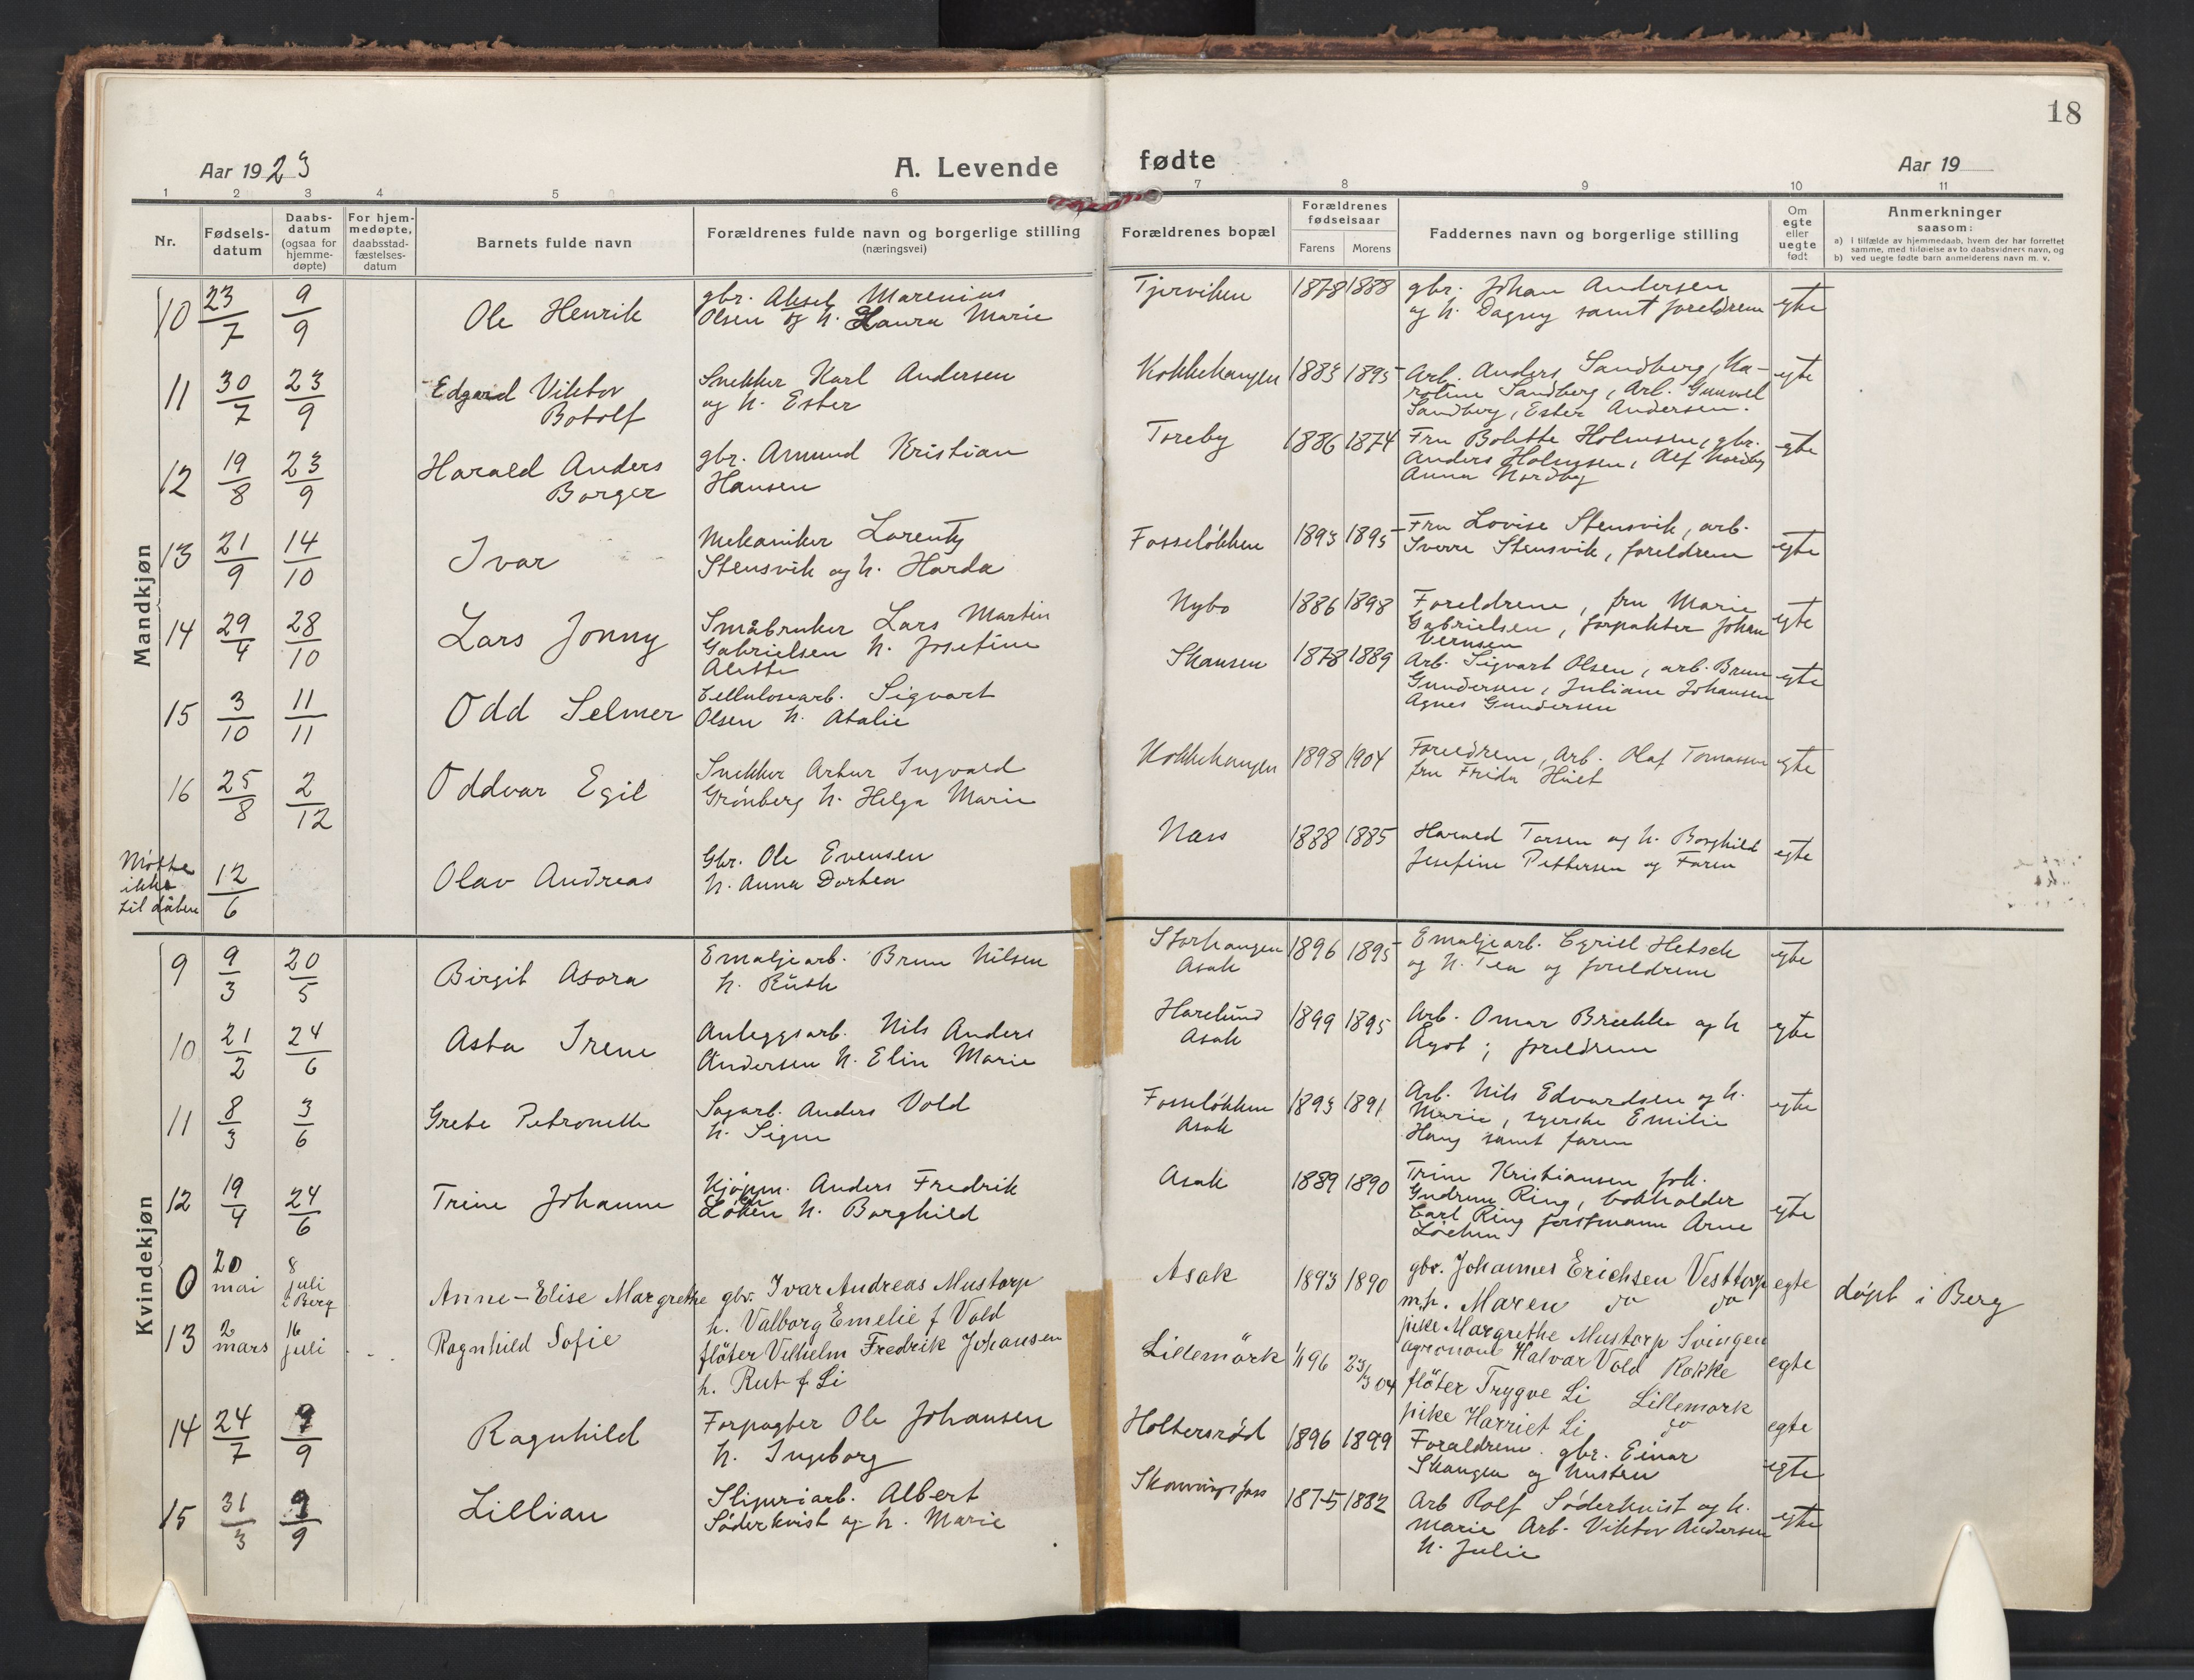 18
Aar 1923
A. Levende
fødte
Aar 19
1 2 3 4 5 6 7 8 9 10 11
Nr.
Fødsels-
datum
Daabs-
datum
(ogsaa for
hjemme-
døpte)
For hjem-
medøpte,
daabsstad-
fæstelses-
datum
Barnets fulde navn
Forældrenes fulde navn og borgerlige stilling
(næringsvei)
Forældrenes bopæl
Forældrenes
fødselsaar
Farens Morens
Faddernes navn og borgerlige stilling
Om
egte
eller
uegte
født
Anmerkninger
saasom:
a) i tilfælde av hjemmedaab, hvem der har forrettet
samme, med tilføielse av to daabsvidners navn, og
b) ved uegte fødte barn anmelderens navn m. v.
Mandkjøn
10 23/7 9/9 Ole Henrik
gbr. Aksel Marenius
Olsen og h. Laura Marie
Tjerviken 1878 1888
gbr. Johan Andersen
og h. Dagny samt foreldrene
egte
11 30/7 23/9 Edgard Viktor
Botolf
Snekker Karl Andersen
og h. Ester
Kokkehaugen 1883 1895
Arb. Anders Sandberg, Ka-
roline Sandberg, Arb. Gunvel
Sandberg, Ester Andersen.
egte
12 19/8 23/9 Harald Anders
Borger
gbr. Amund Kristian
Hansen
Toreby 1886 1874
Fru Bolette Holmsen, gbr.
Anders Holmsen, Alf Nordby
Anna Nordby
egte
13 21/9 14/10 Ivar
Mekaniker Lorentz
Stensvik og h. Harda
Fosseløkken 1893 1895
Fru Lovise Stensvik, arb.
Sverre Stensvik, foreldrene
egte
14 29/4 28/10 Lars Jonny
Småbruker Lars Martin
Gabrielsen h. Josefine
Alette
Nybo 1886 1898
Foreldrene, fru Marie
Gabrielsen, forpakter Johan
Bernsen
egte
15 3/10 11/11 Odd Selmer
Cellulosearb. Sigvart
Olsen h. Atalie
Skansen 1878 1889
Arb. Sigvart Olsen, arb. Brun
Gundersen, Juliane Johansen
Agnes Gundersen
egte
16 25/8 2/12 Oddvar Egil
Snekker Artur Ingvald
Grönberg h. Helga Marie
Kokkehaugen 1898 1904
Foreldrene, Arb. Olaf Tomassen
fru Frida Hüet
egte
Møtte
ikke
til dåben
12/6 Olav Andreas
Gbr. Ole Evensen
h. Anna Dortea
Næss 1888 1885
Harald Torsen og h. Borghild
Josefine Pettersen og Faren
egte
Kvindekjøn
9 9/3 20/5 Birgit Asora
Emaljearb. Brun Nilsen
h. Ruth
Storhaugen
Asak
1896 1895
Emaljearb. Cyrill Hetsch
og h. Tea og foreldrene
egte
10 21/2 24/6 Asta Irene
Anleggsarb. Nils Anders
Andersen h. Elin Marie
Harelund
Asak
1899 1895
Arb. Omar Brekke og h
Ågot; foreldrene
egte
11 8/3 3/6 Grete Petronelle
Sagarb. Anders Vold
h. Signe
Fosseløkken
Asak
1893 1891
Arb. Nils Edvardsen og h.
Marie, syerske Emilie
Haug samt faren
egte
12 19/4 24/6 Trine Johanne
Kjøpm. Anders Fredrik
Løken h. Borghild
Asak 1889 1890
Trine Kristiansen frk.
Gudrun Ring, bokholder
Carl Ring forstmann Arne
Löchen
egte
0 20 mai 8 juli i Berg Anne-Elise Margrethe
gbr. Ivar Andreas Mustorp
h. Valborg Emelie f Vold
Asak 1893 1890
gbr. Johannes Erichsen Vesttorp
m.h. Maren do do
pike Margrethe Mustorp Svingen
agronom Halvar Vold Rokke
egte
døpt i Berg
13 2 mars 16 juli Ragnhild Sofie
fløter Vilhelm Fredrik Johansen
h. Rut f Li
Lillemörk 1/1 96 23/3 04
flöter Trygve Li Lillemörk
pike Harriet Li do
egte
14 24/7 9/9 Ragnhild
Forpagter Ole Johansen
h. Ingeborg
Holtersrød 1896 1899
Forældrene. gbr. Einar
Skaugen og hustru
egte
egte
15 31/3 9/9 Lillian
Sliperiarb. Albert
Söderkvist og h. Marie
Skonningsfoss 1875 1882
Arb Rolf Söderkvist og h.
Marie Arb. Viktor Andersen
h. Julie
egte